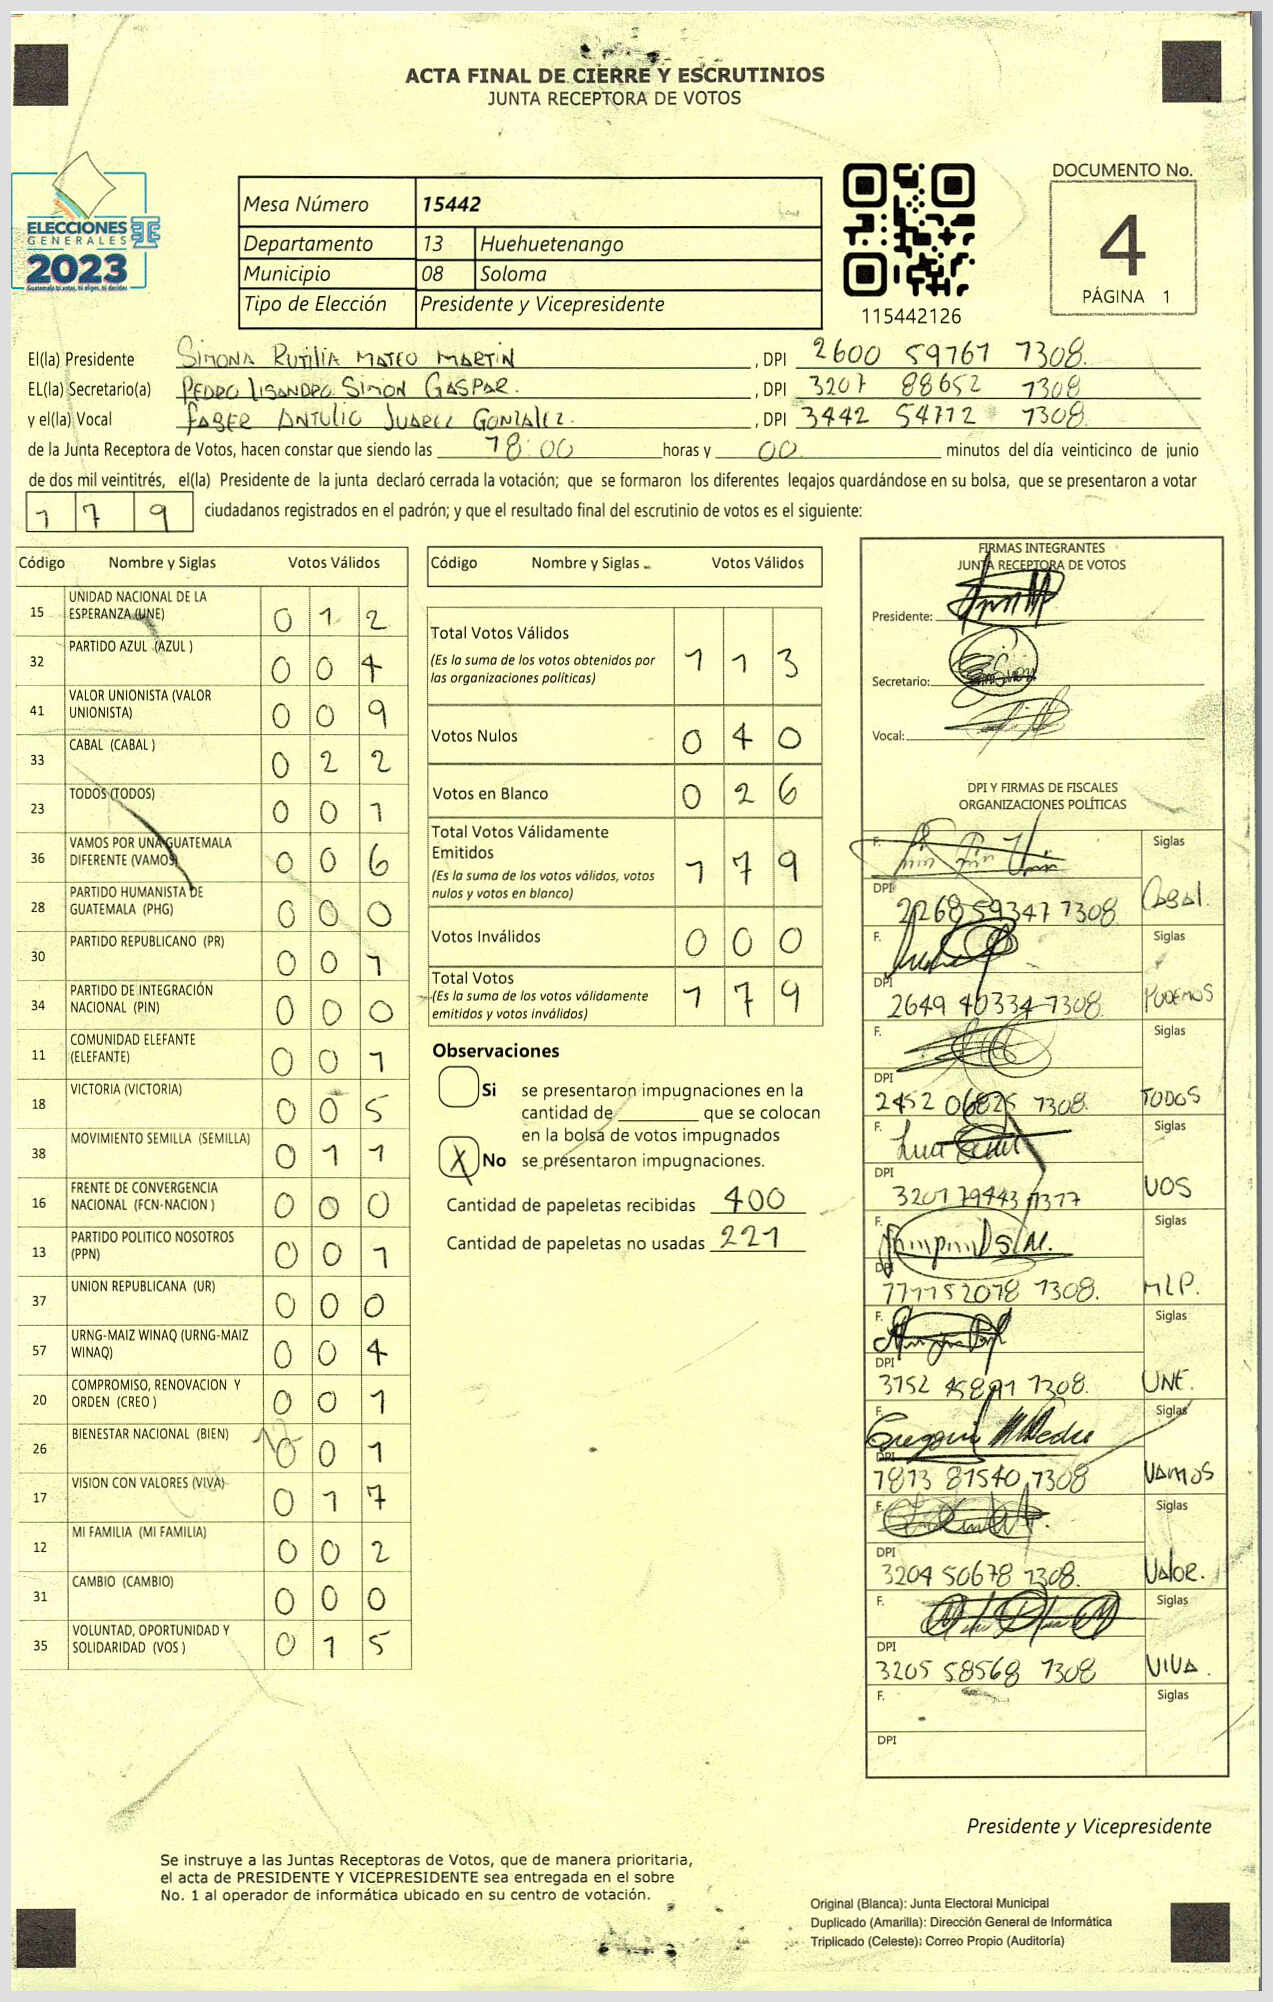 ACTA FINAL DE CIERRE Y ESCRUTINIOS
JUNTA RECEPTORA DE VOTOS
ELECCIONES
GENERALES
2023
Mesa Número 15442
Departamento 13 Huehuetenango
Municipio 08 Soloma
Tipo de Elección Presidente y Vicepresidente
115442126
DOCUMENTO No.
4
PÁGINA 1
El(la) Presidente SIMONA RUTILIA MATEO MARTIN , DPI 2600 59767 1308.
EL(la) Secretario(a) PEDRO LISANDRO SIMON GASPAR. , DPI 3207 88652 1308
y el(la) Vocal FABER ANTULIO JUAREZ GONZALEZ. , DPI 3442 54772 1308.
de la Junta Receptora de Votos, hacen constar que siendo las 18:00 horas y 00 minutos del día veinticinco de junio
de dos mil veintitrés, el(la) Presidente de la junta declaró cerrada la votación; que se formaron los diferentes legajos quardándose en su bolsa, que se presentaron a votar
1 7 9 ciudadanos registrados en el padrón; y que el resultado final del escrutinio de votos es el siguiente:
Código Nombre y Siglas Votos Válidos
15 UNIDAD NACIONAL DE LA
ESPERANZA (UNE) 0 1 2
32 PARTIDO AZUL (AZUL ) 0 0 4
41 VALOR UNIONISTA (VALOR
UNIONISTA) 0 0 9
33 CABAL (CABAL ) 0 2 2
23 TODOS (TODOS) 0 0 1
36 VAMOS POR UNA GUATEMALA
DIFERENTE (VAMOS) 0 0 6
28 PARTIDO HUMANISTA DE
GUATEMALA (PHG) 0 0 0
30 PARTIDO REPUBLICANO (PR) 0 0 1
34 PARTIDO DE INTEGRACIÓN
NACIONAL (PIN) 0 0 0
11 COMUNIDAD ELEFANTE
(ELEFANTE) 0 0 1
18 VICTORIA (VICTORIA) 0 0 5
38 MOVIMIENTO SEMILLA (SEMILLA) 0 1 1
16 FRENTE DE CONVERGENCIA
NACIONAL (FCN-NACION ) 0 0 0
13 PARTIDO POLITICO NOSOTROS
(PPN) 0 0 1
37 UNION REPUBLICANA (UR) 0 0 0
57 URNG-MAIZ WINAQ (URNG-MAIZ
WINAQ) 0 0 4
20 COMPROMISO, RENOVACION Y
ORDEN (CREO ) 0 0 1
26 BIENESTAR NACIONAL (BIEN) 0 0 1
17 VISION CON VALORES (VIVA) 0 1 7
12 MI FAMILIA (MI FAMILIA) 0 0 2
31 CAMBIO (CAMBIO) 0 0 0
35 VOLUNTAD, OPORTUNIDAD Y
SOLIDARIDAD (VOS ) 0 1 5
Código Nombre y Siglas Votos Válidos
Total Votos Válidos 1 1 3
(Es la suma de los votos obtenidos por
las organizaciones políticas)
Votos Nulos 0 4 0
Votos en Blanco 0 2 6
Total Votos Válidamente
Emitidos 1 7 9
(Es la suma de los votos válidos, votos
nulos y votos en blanco)
Votos Inválidos 0 0 0
Total Votos 1 7 9
(Es la suma de los votos válidamente
emitidos y votos inválidos)
Observaciones
Si se presentaron impugnaciones en la
cantidad de que se colocan
en la bolsa de votos impugnados
X No se presentaron impugnaciones.
Cantidad de papeletas recibidas 400
Cantidad de papeletas no usadas 221
FIRMAS INTEGRANTES
JUNTA RECEPTORA DE VOTOS
Presidente:
Secretario:
Vocal:
DPI Y FIRMAS DE FISCALES
ORGANIZACIONES POLÍTICAS
F. Siglas
DPI 2268 59347 1308 CABAL.
F. Siglas
DPI 2649 40334 1308. PODEMOS
F. Siglas
DPI 2452 06825 1308. TODOS
F. Siglas
DPI 3201 79443 1317 VOS
F. Siglas
DPI 1308. MLP.
F. Siglas
DPI 3152 1308. UNE.
F. Siglas
DPI 1873 81540 1308 VAMOS
F. Siglas
DPI 3204 50678 1308. VALOR.
F. Siglas
DPI 3205 58568 1308 VIVA.
F. Siglas
DPI
Presidente y Vicepresidente
Se instruye a las Juntas Receptoras de Votos, que de manera prioritaria,
el acta de PRESIDENTE Y VICEPRESIDENTE sea entregada en el sobre
No. 1 al operador de informática ubicado en su centro de votación.
Original (Blanca): Junta Electoral Municipal
Duplicado (Amarilla): Dirección General de Informática
Triplicado (Celeste): Correo Propio (Auditoría)